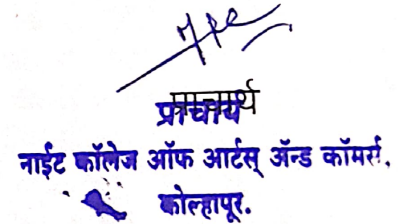 प्राचार्य
नाईट कॉलेज ऑफ आर्टस् ॲन्ड कॉमर्स,
कोल्हापूर.